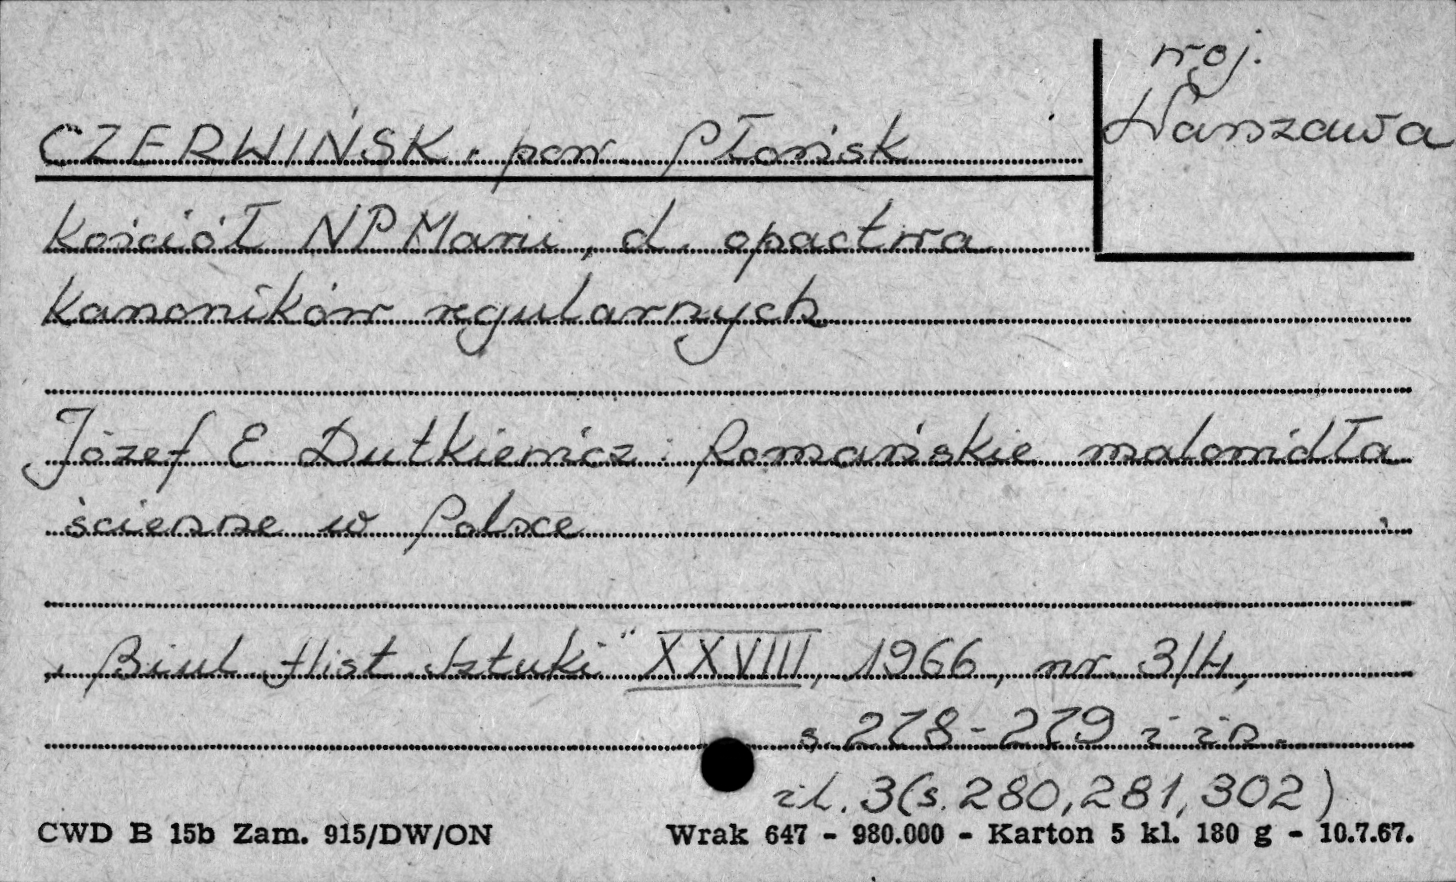 woj.
Warszawa
CZERWIŃSK. pow. Płońsk
kościół NPMarii, d. opactwa
kanoników regularnych
Józef E Dutkiewicz: Romańskie malowidła
ścienne w Polsce
„Biul Hist Sztuki" XXVIII, 1966, nr. 3/4,
s. 278-279 i in.
il. 3(s. 280, 281, 302)
CWD B 15b Zam. 915/DW/ON
Wrak 647 - 980.000 - Karton 5 kl. 180 g - 10.7.67.